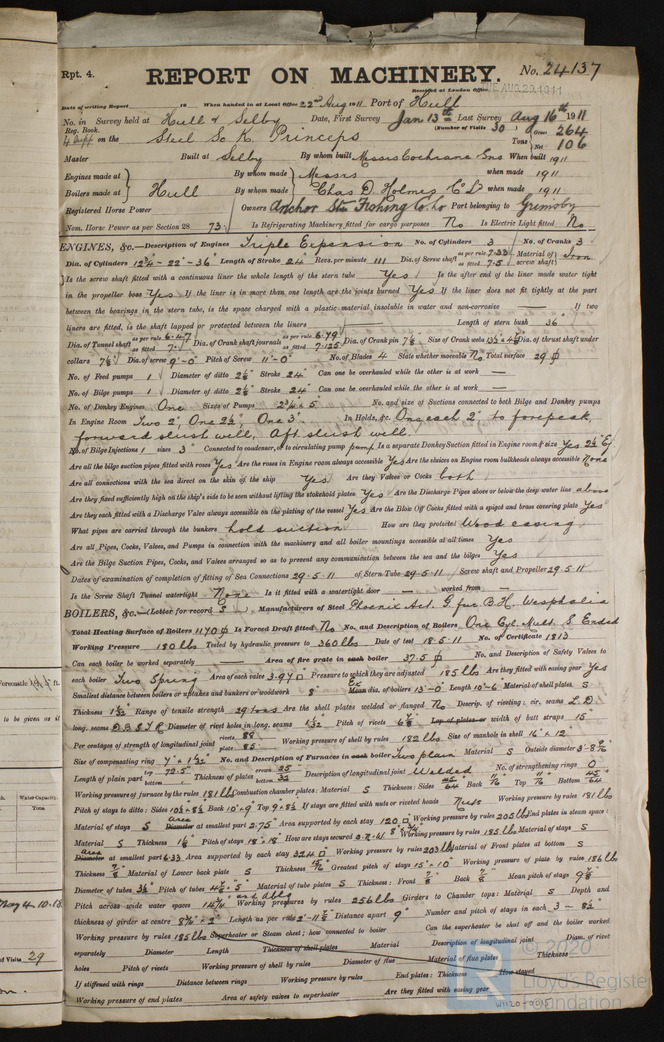 Rpt. 4.
REPORT ON MACHINERY.
No. 24137
Received at London Office TUE. AUG. 29. 1911
Date of writing Report 19 When handed in at Local Office 22nd Aug 1911 Port of Hull
No. in Survey held at Hull & Selby Date, First Survey Jan 13th Last Survey Aug 16th 1911
Reg. Book. (Number of Visits 30)
4 Supp on the Steel Sc K Princeps Tons Gross 264 Net 106
Master Built at Selby By whom built Messrs Cochrane & Sons When built 1911
Engines made at Hull By whom made Messrs when made 1911
Boilers made at By whom made Chas D. Holmes & Co Ld when made 1911
Registered Horse Power Owners Anchor Stm Fishing Co. Lo Port belonging to Grimsby
Nom. Horse Power as per Section 28 73 Is Refrigerating Machinery fitted for cargo purposes No Is Electric Light fitted No
ENGINES, &c.—Description of Engines Triple Expansion No. of Cylinders 3 No. of Cranks 3
Dia. of Cylinders 12¾ - 22 - 36" Length of Stroke 24" Revs. per minute 111 Dia. of Screw shaft as per rule 7.33 as fitted 7.5 Material of screw shaft Iron
Is the screw shaft fitted with a continuous liner the whole length of the stern tube Yes Is the after end of the liner made water tight
in the propeller boss Yes If the liner is in more than one length are the joints burned Yes If the liner does not fit tightly at the part
between the bearings in the stern tube, is the space charged with a plastic material insoluble in water and non-corrosive — If two
liners are fitted, is the shaft lapped or protected between the liners — Length of stern bush 36"
Dia. of Tunnel shaft as per rule 6.47 as fitted Dia. of Crank shaft journals as per rule 6.79 as fitted 7.125 Dia. of Crank pin 7½ Size of Crank webs Dia. of thrust shaft under
collars 7½ Dia. of screw 9'-0" Pitch of Screw 11'-0" No. of Blades 4 State whether moveable No Total surface 29
No. of Feed pumps 1 Diameter of ditto 2½" Stroke 24" Can one be overhauled while the other is at work —
No. of Bilge pumps 1 Diameter of ditto 2½" Stroke 24" Can one be overhauled while the other is at work —
No. of Donkey Engines One Sizes of Pumps No. and size of Suctions connected to both Bilge and Donkey pumps
In Engine Room Two 2", One 2½", One 3" In Holds, &c. One each 2" to forepeak,
forward slush well, Aft slush well
No. of Bilge Injections 1 sizes 3" Connected to condenser, or to circulating pump pump Is a separate Donkey Suction fitted in Engine room & size Yes 2½" Ej.
Are all the bilge suction pipes fitted with roses Yes Are the roses in Engine room always accessible Yes Are the sluices on Engine room bulkheads always accessible None
Are all connections with the sea direct on the skin of the ship Yes Are they Valves or Cocks both
Are they fixed sufficiently high on the ship's side to be seen without lifting the stokehold plates Yes Are the Discharge Pipes above or below the deep water line above
Are they each fitted with a Discharge Valve always accessible on the plating of the vessel Yes Are the Blow Off Cocks fitted with a spigot and brass covering plate Yes
What pipes are carried through the bunkers hold suction How are they protected Wood casing
Are all Pipes, Cocks, Valves, and Pumps in connection with the machinery and all boiler mountings accessible at all times Yes
Are the Bilge Suction Pipes, Cocks, and Valves arranged so as to prevent any communication between the sea and the bilges Yes
Dates of examination of completion of fitting of Sea Connections 29-5-11 of Stern Tube 29-5-11 Screw shaft and Propeller 29-5-11
Is the Screw Shaft Tunnel watertight None Is it fitted with a watertight door — worked from —
BOILERS, &c.—(Letter for record S) Manufacturers of Steel Phoenix Act. G. fur B.H. Westphalia
Total Heating Surface of Boilers 1170 Is Forced Draft fitted No No. and Description of Boilers One Cyl. Mult. S. Ended
Working Pressure 180 lbs Tested by hydraulic pressure to 360 lbs Date of test 18-5-11 No. of Certificate 1813
Can each boiler be worked separately — Area of fire grate in each boiler 37.5 No. and Description of Safety Valves to
each boiler Two Spring Area of each valve 3.97 Pressure to which they are adjusted 185 lbs Are they fitted with easing gear Yes
Smallest distance between boilers or uptakes and bunkers or woodwork 8" Ex Mean dia. of boilers 13'-0" Length 10'-6" Material of shell plates S
Thickness 1 3/32 Range of tensile strength 29 tons Are the shell plates welded or flanged No Descrip. of riveting: cir. seams L.D
long. seams D B S T R Diameter of rivet holes in long. seams 1 3/32 Pitch of rivets 6⅞ Lap of plates or width of butt straps 15"
Per centages of strength of longitudinal joint rivets 88 plate 85 Working pressure of shell by rules 182 lbs Size of manhole in shell 16" x 12"
Size of compensating ring No. and Description of Furnaces in each boiler Two plain Material S Outside diameter
Length of plain part top 72.5 bottom Thickness of plates crown 25/32 bottom Description of longitudinal joint Welded No. of strengthening rings 0
Working pressure of furnace by the rules 181 lbs Combustion chamber plates: Material S Thickness: Sides Back Top Bottom
Pitch of stays to ditto: Sides Back 10" x 9" Top 9 x 8½ If stays are fitted with nuts or riveted heads Nuts Working pressure by rules 181 lbs
Material of stays S Diameter Area at smallest part 2.75" Area supported by each stay 120 Working pressure by rules 205 lbs End plates in steam space:
Material S Thickness 1⅛" Pitch of stays 18" x 18" How are stays secured Working pressure by rules 185 lbs Material of stays S
Diameter Area at smallest part 6.33 Area supported by each stay 324 Working pressure by rules 203 lbs Material of Front plates at bottom S
Thickness ⅞ Material of Lower back plate S Thickness Greatest pitch of stays 15" x 10" Working pressure of plate by rules 186 lbs
Diameter of tubes 3½" Pitch of tubes Material of tube plates S Thickness: Front ⅞ Back Mean pitch of stays 9½
Pitch across wide water spaces Working pressures by rules 256 lbs Girders to Chamber tops: Material S Depth and
thickness of girder at centre Length as per rule Distance apart 9" Number and pitch of stays in each 3 - 8½"
Working pressure by rules 185 lbs Superheater or Steam chest; how connected to boiler Can the superheater be shut off and the boiler worked
separately Diameter Length Thickness of shell plates Material Description of longitudinal joint Diam. of rivet
holes Pitch of rivets Working pressure of shell by rules Diameter of flue Material of flue plates Thickness
If stiffened with rings Distance between rings Working pressure by rules End plates: Thickness How stayed
Working pressure of end plates Area of safety valves to superheater Are they fitted with easing gear
© 2020
Lloyd's Register
Foundation